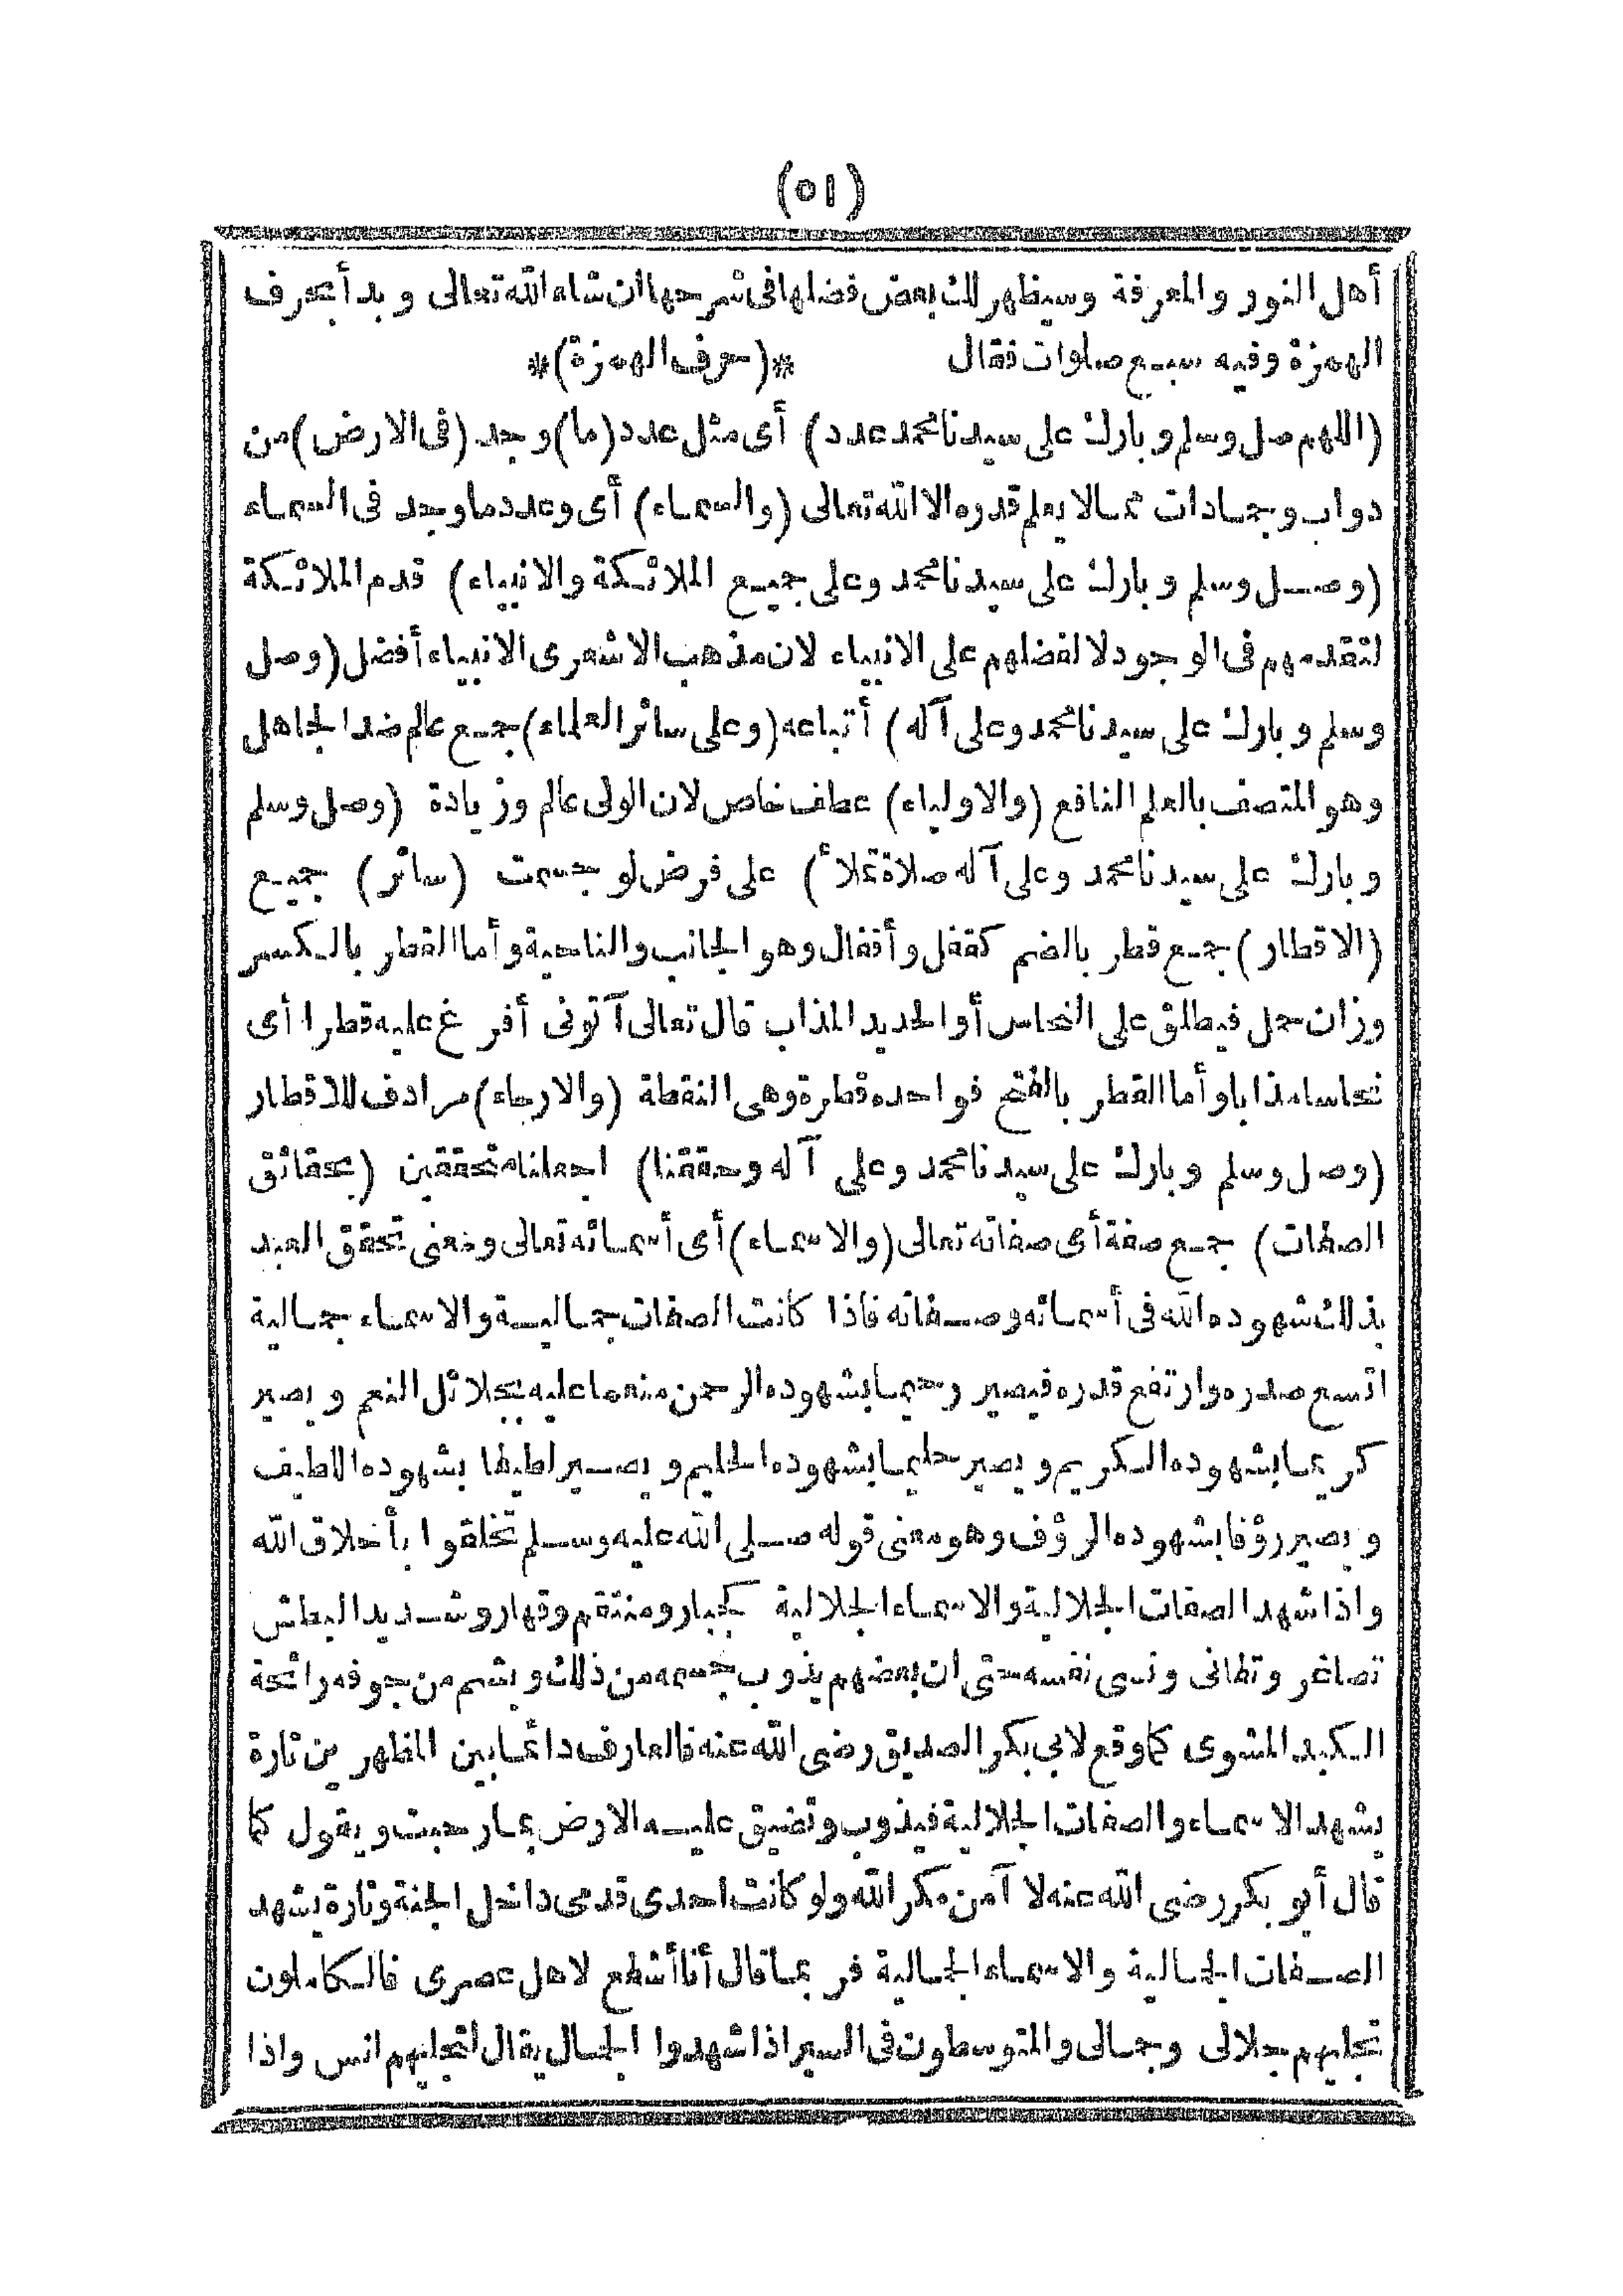 (٥١)
أهل النور والمعرفة وسيظهر لك بعض فضلها فى شرحها ان شاء الله تعالى وبدأ بحرف
الهمزة وفيه سبع صلوات فقال *(حرف الهمزة)*
(اللهم صل وسلم وبارك على سيدنا محمد عدد) أى مثل عدد (ما) وجد (فى الارض) من
دواب وجمادات مما لا يعلم قدره الا الله تعالى (والسماء) أى وعدد ما وجد فى السماء
(وصل وسلم وبارك على سيدنا محمد وعلى جميع الملائكة والانبياء) قدم الملائكة
لتقدمهم فى الوجود لا لفضلهم على الانبياء لان مذهب الاشعرى الانبياء أفضل (وصل
وسلم وبارك على سيدنا محمد وعلى آله) أتباعه (وعلى سائر العلماء) جمع عالم ضد الجاهل
وهو المتصف بالعلم النافع (والاولياء) عطف خاص لان الولى عالم وزيادة (وصل وسلم
وبارك على سيدنا محمد وعلى آله صلاة تملأ) على فرض لو جسمت (سائر) جميع
(الاقطار) جمع قطر بالضم كقفل وأقفال وهو الجانب والناحية وأما القطر بالكسر
وزان حمل فيطلق على النحاس أو الحديد المذاب قال تعالى آتونى أفرغ عليه قطرا أى
نحاسا مذابا وأما القطر بالفتح فواحده قطرة وهى النقطة (والارجاء) مرادف للاقطار
(وصل وسلم وبارك على سيدنا محمد وعلى آله وحققنا) اجعلنا متحققين (بحقائق
الصفات) جمع صفة أى صفاته تعالى (والاسماء) أى أسمائه تعالى ومعنى تحقق العبد
بذلك شهوده الله فى أسمائه وصفاته فاذا كانت الصفات جمالية والاسماء جمالية
اتسع صدره وارتفع قدره فيصير رحيما بشهوده الرحمن منعما عليه بجلائل النعم ويصير
كريما بشهوده الكريم ويصير حليما بشهوده الحليم ويصير لطيفا بشهوده اللطيف
ويصير رؤفا بشهوده الرؤف وهو معنى قوله صلى الله عليه وسلم تخلقوا بأخلاق الله
واذا شهد الصفات الجلالية والاسماء الجلالية كجبار ومنتقم وقهار وشديد البطش
تصاغر وتفانى ونسى نفسه حتى ان بعضهم يذوب جسمه من ذلك ويشم من جوفه رائحة
الكبد المشوى كما وقع لابى بكر الصديق رضى الله عنه فالعارف دائما بين المظهرين تارة
يشهد الاسماء والصفات الجلالية فيذوب وتضيق عليه الارض بما رحبت ويقول كما
قال أبو بكر رضى الله عنه لا آمن مكر الله ولو كانت احدى قدمى داخل الجنة وتارة يشهد
الصفات الجمالية والاسماء الجمالية فربما قال أنا أشفع لاهل عصرى فالكاملون
تجليهم جلالى وجمالى والمتوسطون فى السير اذا شهدوا الجمال يقال لتجليهم انس واذا